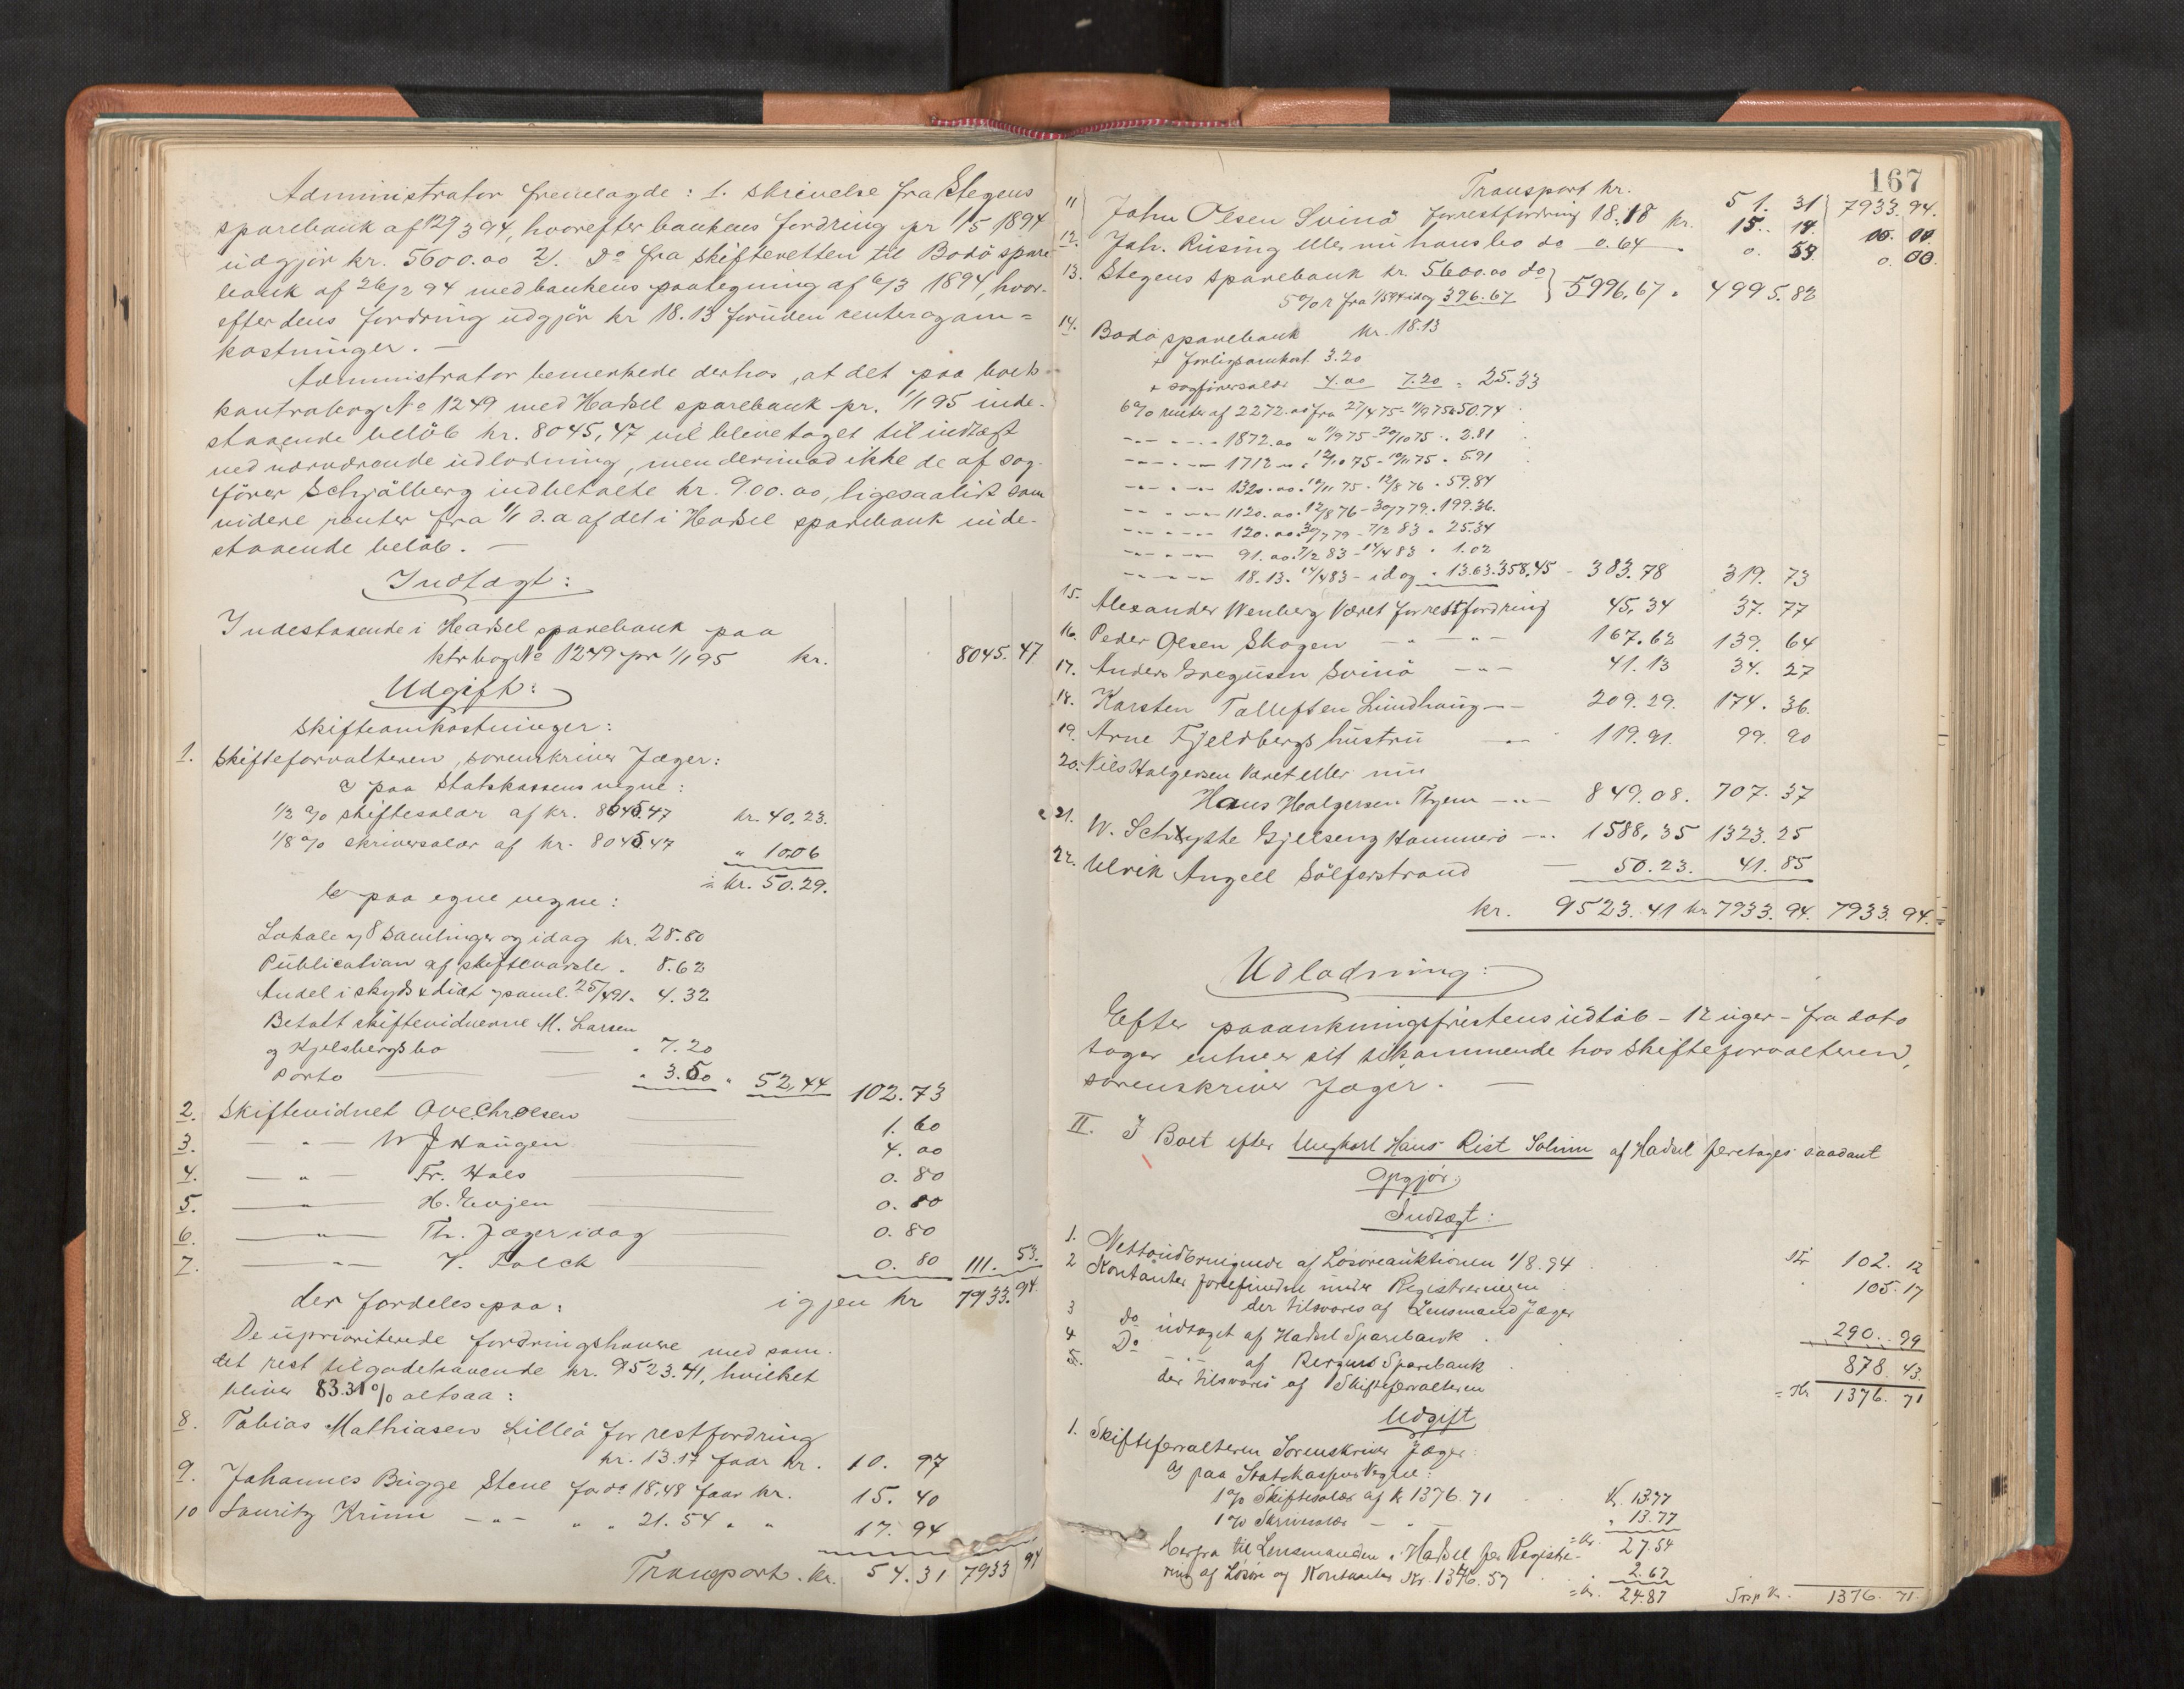 Administrator fremlagde: 1. skrivelse fra Stegens
sparebank af 12/3 94, hvorefter bankens fordring pr 1/5 1894
udgjør kr. 5600.00 2. Do fra skifteretten til Bodö spare
bank af 26/2 94 med bankens paategning af 6/3 1894, hvor-
efter dens fordring udgjör kr 18.13 foruden renter og om=
kostninger. —
Administrator bemerkede derhos, at det paa bank
kontrabog No 1249 med Hadsel sparebank pr. 1/1 95 inde-
staaende belöb kr. 8045,47 vil blive taget til indtægt
ved nærværende udlodning, men derimod ikke de af sag-
förer Schjölberg indbetalte kr. 900.00, ligesaalidt som
videre renter fra 1/1 d.a af det i Hadsel sparebank inde-
staaende belöb. —
Indtægt:
Indestaaende i Hadsel sparebank paa
ktrbog No 1249 pr 1/1 95 kr. 8045. 47
Udgift:
Skifteomkostninger:
1. Skifteforvalteren, sorenskriver Jæger:
a paa Statskassens vegne:
1/2 % skiftesalær af kr. 8045.47 kr. 40.23.
1/8 % skriversalær af kr. 8045.47 " 10.06
= kr. 50.29.
b paa egne vegne:
Lokale 8 samlinger og idag kr. 28.80
Publication af skiftevarsle . 8.62
Andel i skyds & diæt saml. 25/4 91. 4.32
Betalt skiftevidnerne M. Larsen
og Kjelsbergs bo — . 7.20
Porto — — . 3.50 . 52,44 102.73
2. Skiftevidnet Ove Chr Olsen 1. 60
3. — " — W J Haugen 4. 00
4. — " — Fr. Hals 0. 80
5. — " — H. Evjen 0. 80
6. — " — Th. Jæger idag 0. 80
7. — " — V. Falck 0. 80 111. 53.
igjen kr 7933. 94
der fordeles paa:
De uprioriterede fordringshavere med sam-
det rest tilgodehavende kr. 9523.41, hvilket
bliver 83.31 % altsaa:
8. Tobias Mathiasen Lilleö for restfordring
kr. 13.17 faar kr. 10. 97
9. Johannes Bugge Stene for do 18.48 faar kr. 15. 40
10 Lauritz Krimm — " — " " 21.54 " " 17. 94
Transport. kr. 54. 31 7933 94
167
Transport kr. 51. 31 7933. 94.
11 John Olsen Svinö for restfordring 18.18 kr. 15. 14. 00. 00.
12. Joh. Rüsing eller nu hans bo do 0.64 . 0. 53 0. 00.
13. Stegens sparebank kr. 5600.00 do
5 % r fra 1/5 94 idag 396.67 } 5996,67 . 4995. 82
14. Bodö sparebank kr. 18.13
+ forligsomkost. 3.20
+ sagförersalær 4.00 7.20 = 25.33
6 % renter af 2272.00 fra 27/4 75 - 11/9 75 50.74
— — 1872.00 " 11/9 75 - 20/10 75 . 2.81
— — 1712 — " 12/10 75 - 10/11 75 . 5.91
— — 1320.00. 10/11 75 - 12/8 76 . 59.84
— — 1120.00. 12/8 76 - 30/7 79 . 199.36.
— — 120.00. 30/7 79 - 7/2 83 . 25.34
— — 91.00. 7/2 83 - 14/4 83 . 1.02
— — 18.13. 14/4 83 - idag . 13.63. 358,45 - 383.78 319. 73
15. Alexander Wenberg Været for restfordring 45. 34 37. 77
16. Peder Olsen Skogen — " — " — 167.62 139. 64
17. Anders Gregusen Svinö — " — 41.13 34. 27
18. Karsten Tollefsen Lundhaug — 209.29. 174. 36.
19. Arne Fjeldbergs hustru — " 119.91. 99. 90
20. Nils Holgersen Været eller nu
Hans Holgersen Thjem — " — 849.08. 707. 37
21. W. Schytte Gjelseng Hammerö — " 1588,35 1323. 25
22. Ulrik Angell Sölfarstrand — 50.23. 41. 85
kr. 9523. 41 kr 7933. 94. 7933. 94.=
Udlodning:
Efter paaankningsfristens udløb — 12 uger — fra dato
tager enhver sit tilkommende hos skifteforvalteren,
sorenskriver Jæger. —
II. I Boet efter Ungkarl Hans Rist Solum af Hadsel foretoges saadant
Opgjør:
Indtægt:
1. Nettoudbringende af Løsøreauktionen 1/8.94 Kr 102. 12
2 Kontanter forefundne under Registreringen
der tilsvares af Lensmand Jæger . 105. 17
3 do udtaget af Hadsel Sparebank . 290. 99
4 Do — " — af Bergens Sparebank . 878. 43.
5. der tilsvares af Skifteforvalteren = Kr 1376. 71
Udgift
1. Skifteforvalteren Sorenskriver Jæger:
a) paa Statskassens Vegne:
1 % Skiftesalær af kr 1376. 71 Kr. 13.77
1 % Skriversalær — " — " 13.77
= kr. 27.54
Herfra til Lensmanden i Hadsel for Registre-
ring af Løsøre og Kontanter Kr. 1376.57 2.67
= kr. 24.87 Trsp Kr. 1376. 71